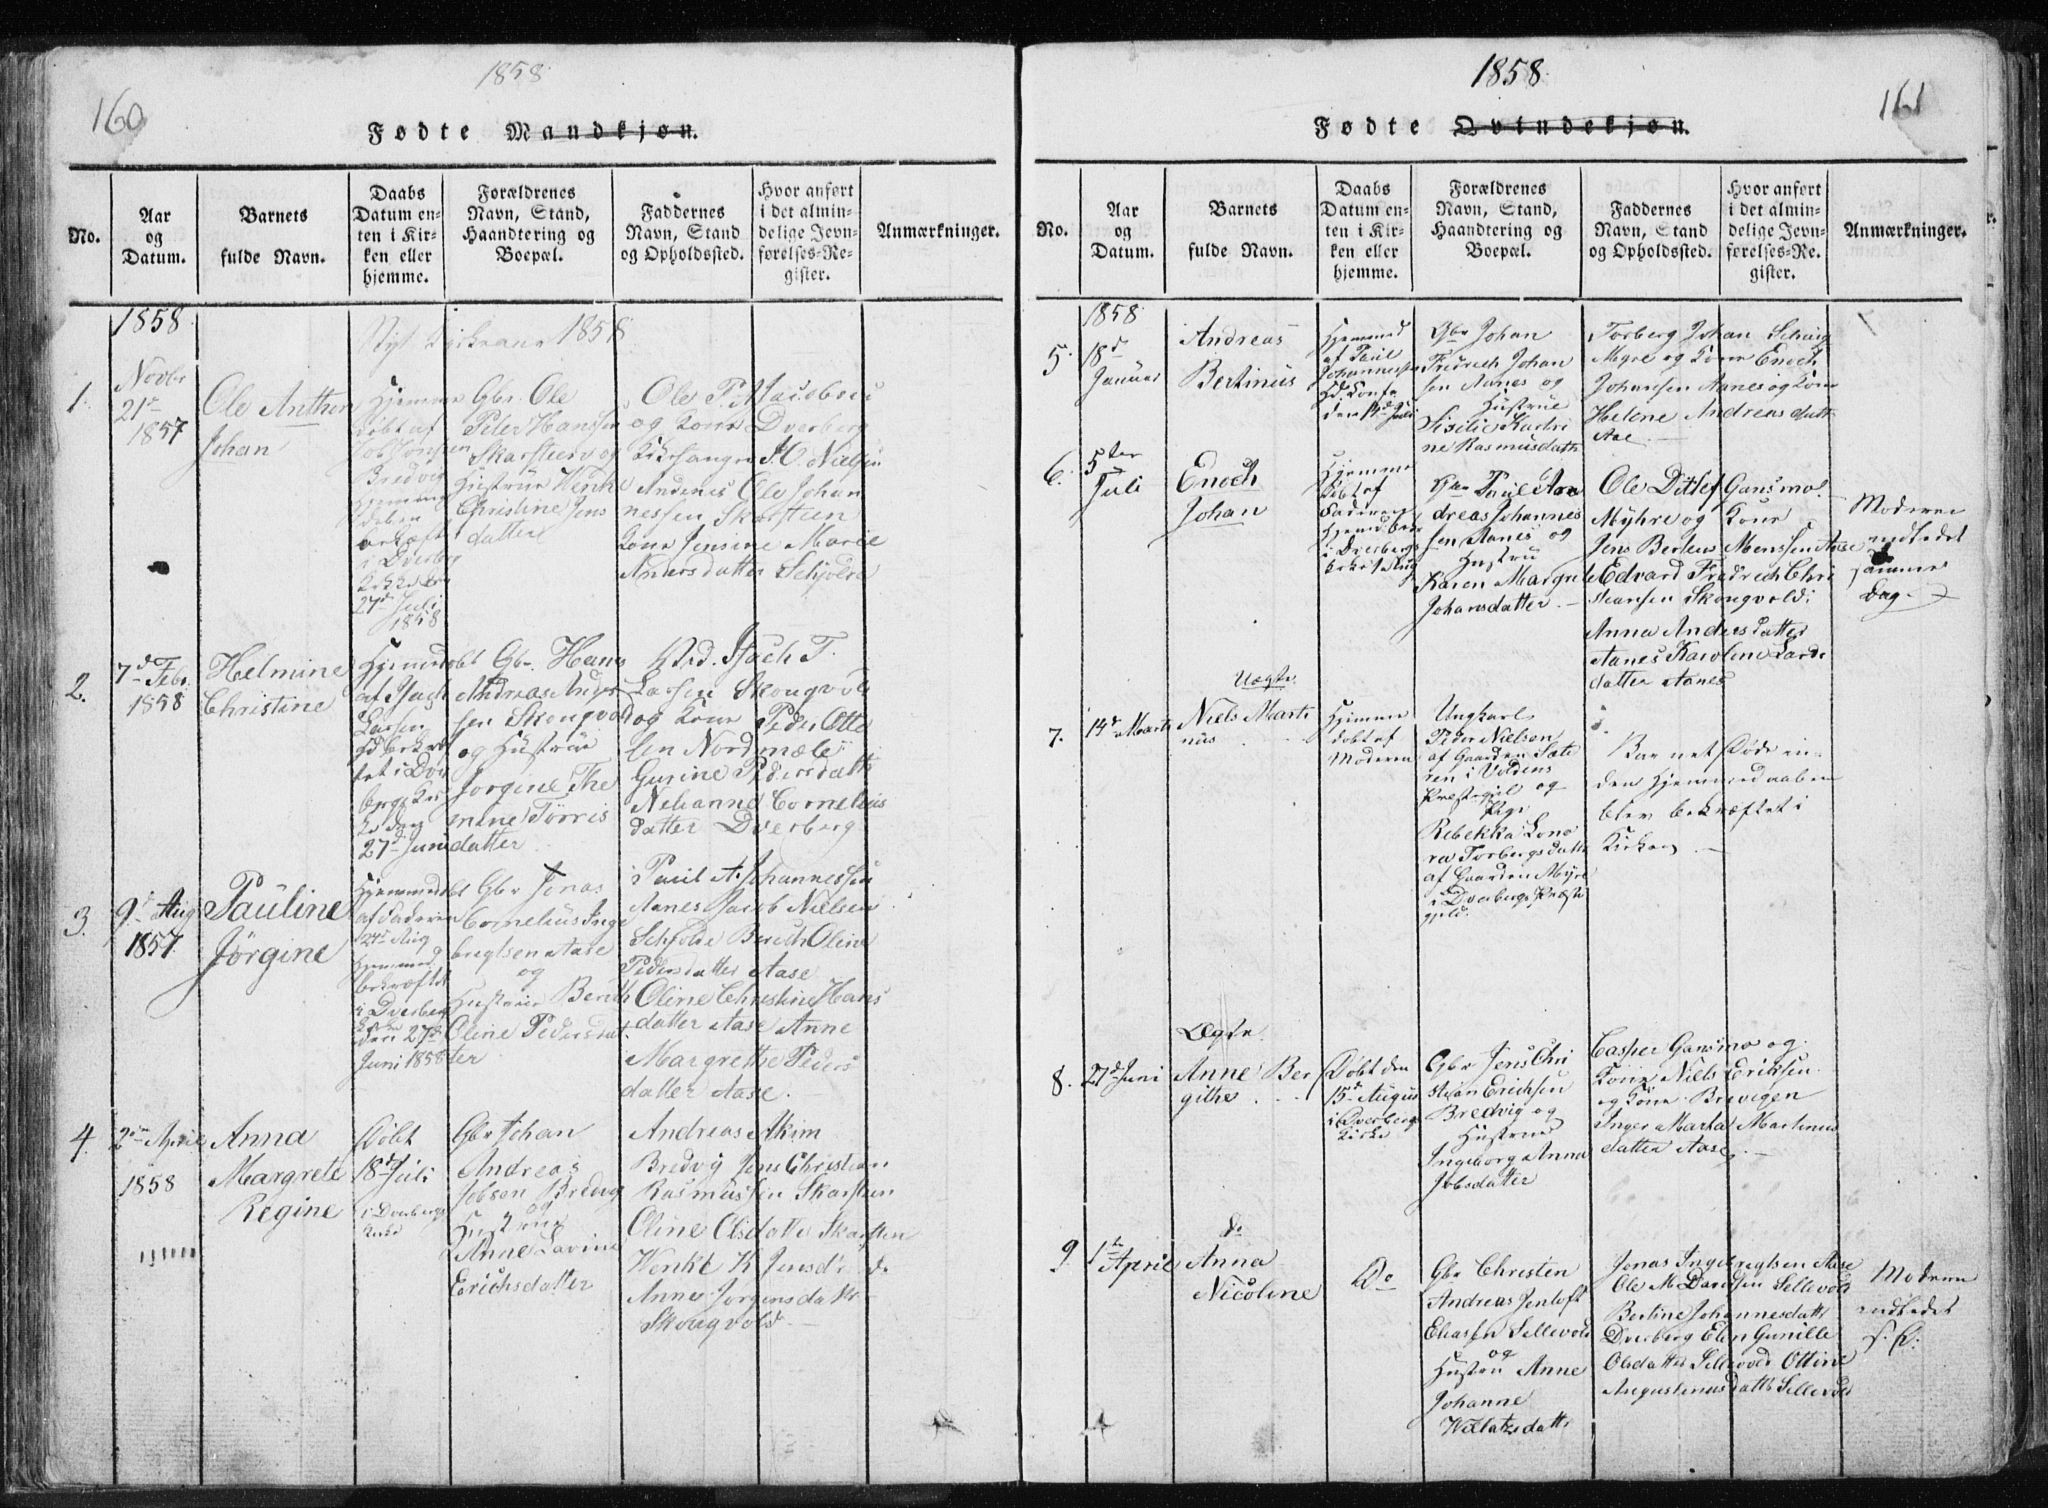 160
1858
Fødte Mandkjøn.
No.
Aar
og
Datum.
Barnets
fulde Navn.
Daabs
Datum en-
ten i Kir-
ken eller
hjemme.
Forældrenes
Navn, Stand,
Haandtering og
Boepæl.
Faddernes
Navn, Stand
og Opholdssted.
Hvor anført
i det almin-
delige Jevn-
førelses-Re-
gister.
Anmærkninger.
1858
1858
1.
Novbr
21de
1857
Ole Anthon
Johan
Hjemme
døbt af
Bredvig
i Dverberg
27d Juli
1858
Gbr. Ole
Peter Hansen
Skarstien og
Hustrue Wenke
Christine Jens
datter
Ole P. Jacobsen
og Kone Dverberg
Kirkesanger J. C. Nielsen
Andenes Ole Johan
nessen Skarstien
Kone Jensine Marie
Andersdatter
2.
7d Febr.
1858
Helmine
Christine
Hjemmedøbt
af Isach
Larsen
27d Juni
Gbr. Hans
Andreas Ander
sen Skongvold
og Hustrue
Jørgine The
mine Tørris
datter
Isach T.
Larsen Skongvold
og Kone Peder Otte
sen Nordmæle
Gurine Pedersdatt
Nilianna Cornelius
datter Dverberg
3.
9d Aug
1857
Pauline
Jørgine
Hjemmedøbt
af Faderen
24d Aug
bekræftet
i Dverberg
den 27d
Juni 1858
Gbr Jonas
Cornelius Inge
bregtsen Aase
og
Hustrue Berith
Oline Pedersdat
ter
Paul A. Johannessen
Aanes Jacob Nielsen
Berith Oline
Pedersdatter Aase
Oline Christine Hans
datter Aase Anne
Margrethe Peders
datter Aase.
4.
2den April
1858
Anna
Margrete
Regine
Døbt
18d Juli
i Dverbergs
Kirke
Gbr Johan
Andreas
Jobsen Bredvig
og
Hustrue
Anne Lavine
Erichsdatter
Andreas Akim
Bredvig Jens Christian
Rasmussen Skarstien
Oline Olsdatter Skarstien
Wenke K Jensdr do
Anne Jørgensdattr
Skongvold
1858
161
Fødte Qvindekjøn.
No.
Aar
og
Datum.
Barnets
fulde Navn.
Daabs
Datum en-
ten i Kir-
ken eller
hjemme.
Forældrenes
Navn, Stand,
Haandtering og
Boepæl.
Faddernes
Navn, Stand
og Opholdssted.
Hvor anført
i det almin-
delige Jevn-
førelses-Re-
gister.
Anmærkninger.
1858
5.
18d
Januar
Andreas
Bertinus
Hjemmed
af Paul
Johannessen
Gbr Johan
Fredrech Johan
sen Aanes og
Hustrue
Sisilie Kathri
ne Rasmusdattr
Torberg Johan
Myre og Kone Enoch
Johansen Aanes og Kone
Helene Andreasdatt
Ase
6.
5ter
Juli
Enoch
Johan
Hjemme
døbt af
Faderen
i Dverbergs
Gbr Paul An
dreas Johannes
sen Aanes og
Hustru
Karen Margrete
Johansdatter.
Ole Ditlef Gansmo
Myhre og Kone
Jens Berteus Monssen Aase
Edvard Fredrech Chri
stiansen Skongvold
Anna Andersdatter
Aanes Karoline Lars
datter Aanes
Moderen
indledet
samme
Dag.
7.
14d Marts
Uægte
Niels Marti
nus
Hjemme
døbt af
Moderen
Ungkarl
Peder Nielsen
af Gaarden Sæte
ren i Voldens
Præstegjel og
Pige
Rebekka Leno
ra Torbergsdatt
af Gaarden Myre
i Dverbergs Præste
gjeld.
Barnet Døde in-
den Hjemmedaaben
blev bekræftet i
Kirken
8.
27d Juni
Ægte
Anne Ber
githe
Døbt den
15d August
i Dverbergs
Kirke
Gbr Jens Chri
stian Erichsen
Bredvig og
Hustrue
Ingeborg Anna
Jobsdatter
Casper Gansmo og
Kone Niels Eriksen
og Kone Brevigen
Inger Marta Martinus
datter Aase.
9
1ste April
do
Anna
Nicoline
Do
Gbr Christen
Andreas Jentoft
Eliasen Sellevold
og
Hustru Anne
Johanne
Jonas Ingebregtsen Aase
Ole M Davidsen Sellevold
Bertine Johannesdatt
Dverberg Elen Gunille
Olsdatter Sellevold Ottine
Augustinusdattr Sellevold
Moderen
indledet
s. D.